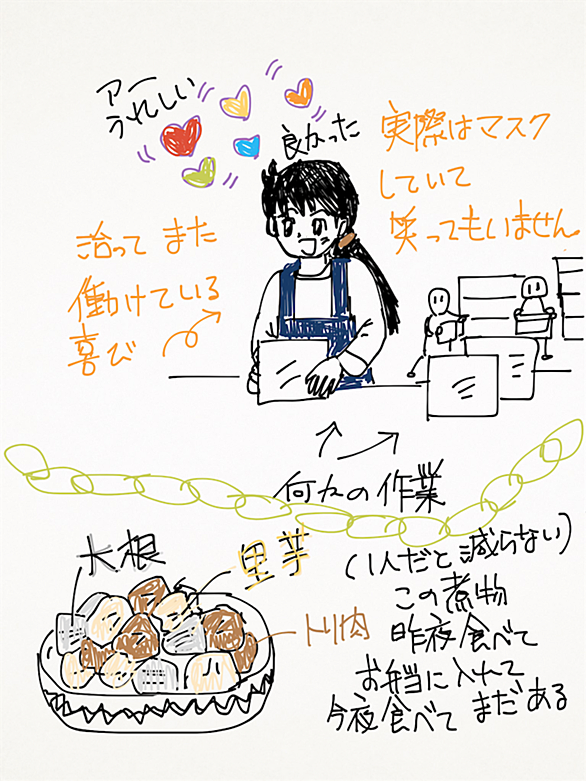 アー
うれしい
良かった
実際はマスク
していて
笑ってもいません
治って また
働けている
喜び
何カの作業
大根
里芋
トリ肉
(1人だと減らない)
この煮物
昨夜食べて
お弁当に入れて
今夜食べて まだある